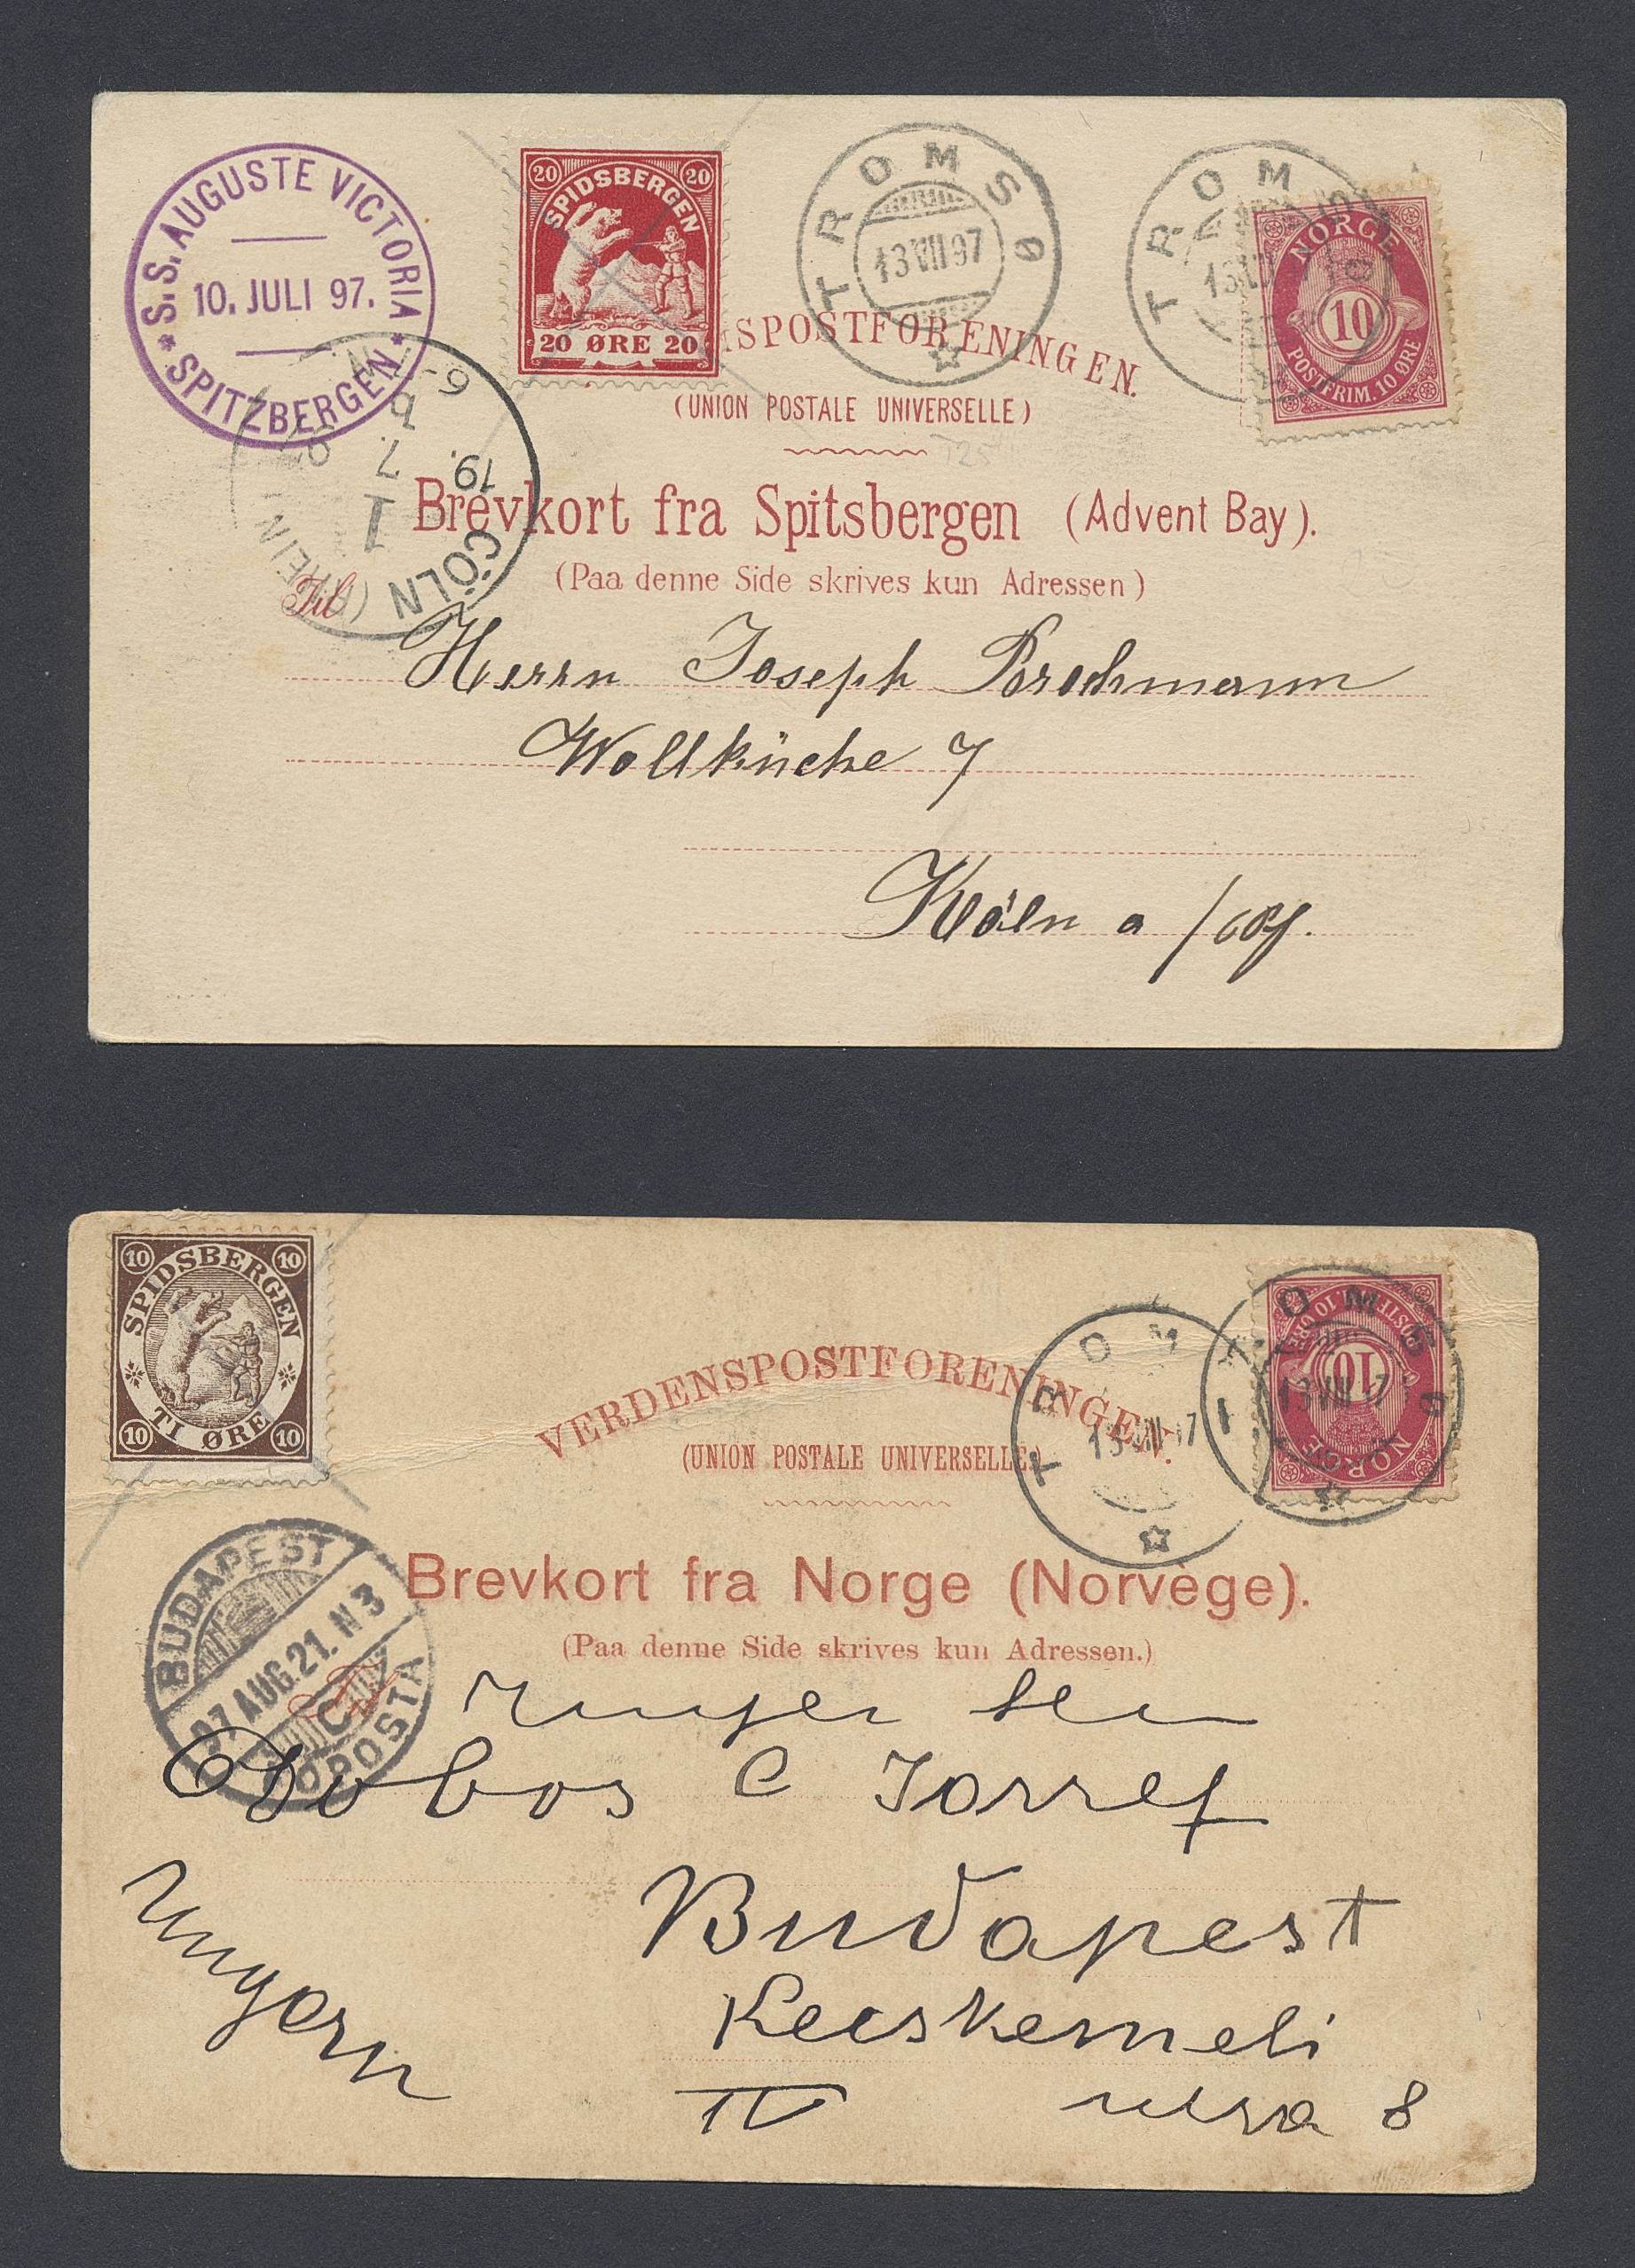 S.S. AUGUSTE VICTORIA
10. JULI 97.
* SPITZBERGEN *
20 20
SPIDSBERGEN
20 ØRE 20
TROMSØ
13 VII 97
TROM
13
NORGE
10
POSTFRIM. 10 ØRE
SPOSTFORENINGEN.
(UNION POSTALE UNIVERSELLE)
T25
CÖLN (RHEIN)
1
19. 7. 97
6-7
Brevkort fra Spitsbergen (Advent Bay).
(Paa denne Side skrives kun Adressen)
Til
Herrn Joseph
Wollküche 7
Köln a/
10 10
SPIDSBERGEN
TI ØRE
10 10
VERDENSPOSTFORENINGEN.
(UNION POSTALE UNIVERSELLE.)
TROM
13 VIII 97
TROMSØ
13 VIII 97
NORGE
10
POSTFRIM. 10 ØRE
BUDAPEST
97 AUG. 21. N 3
C
FŐPOSTA
Brevkort fra Norge (Norvège).
(Paa denne Side skrives kun Adressen.)
Til
Dobos C József
Budapest
Ungarn
Kecskemeti
IV utza 8